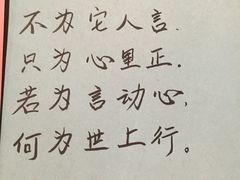 不为它人言.
只为心里正.
若为言动心,
何为世上行。